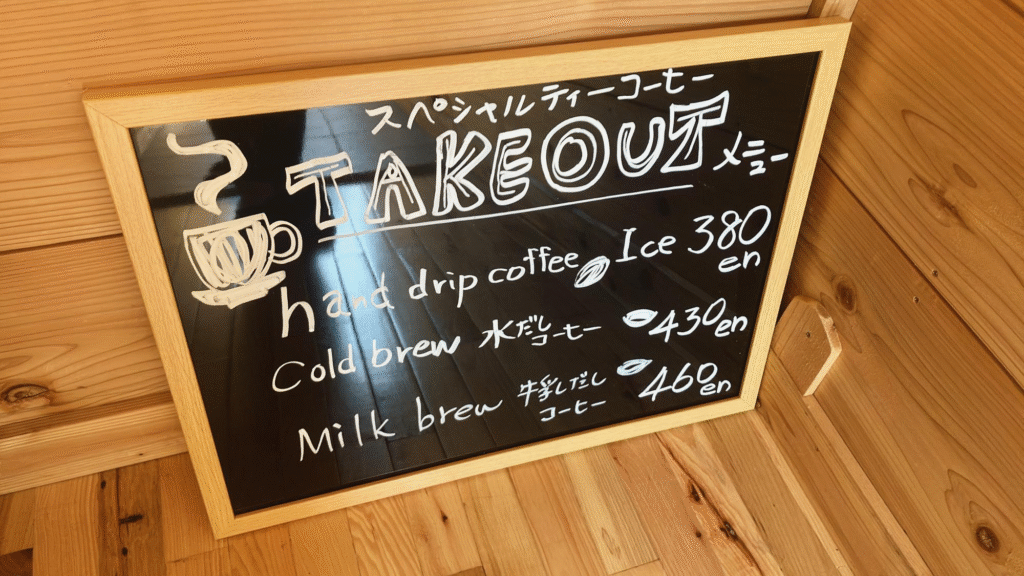 スペシャルティーコーヒー
TAKEOUT メニュー
hand drip coffee Ice 380en
Cold brew 水だしコーヒー 430en
Milk brew 牛乳だしコーヒー 460en